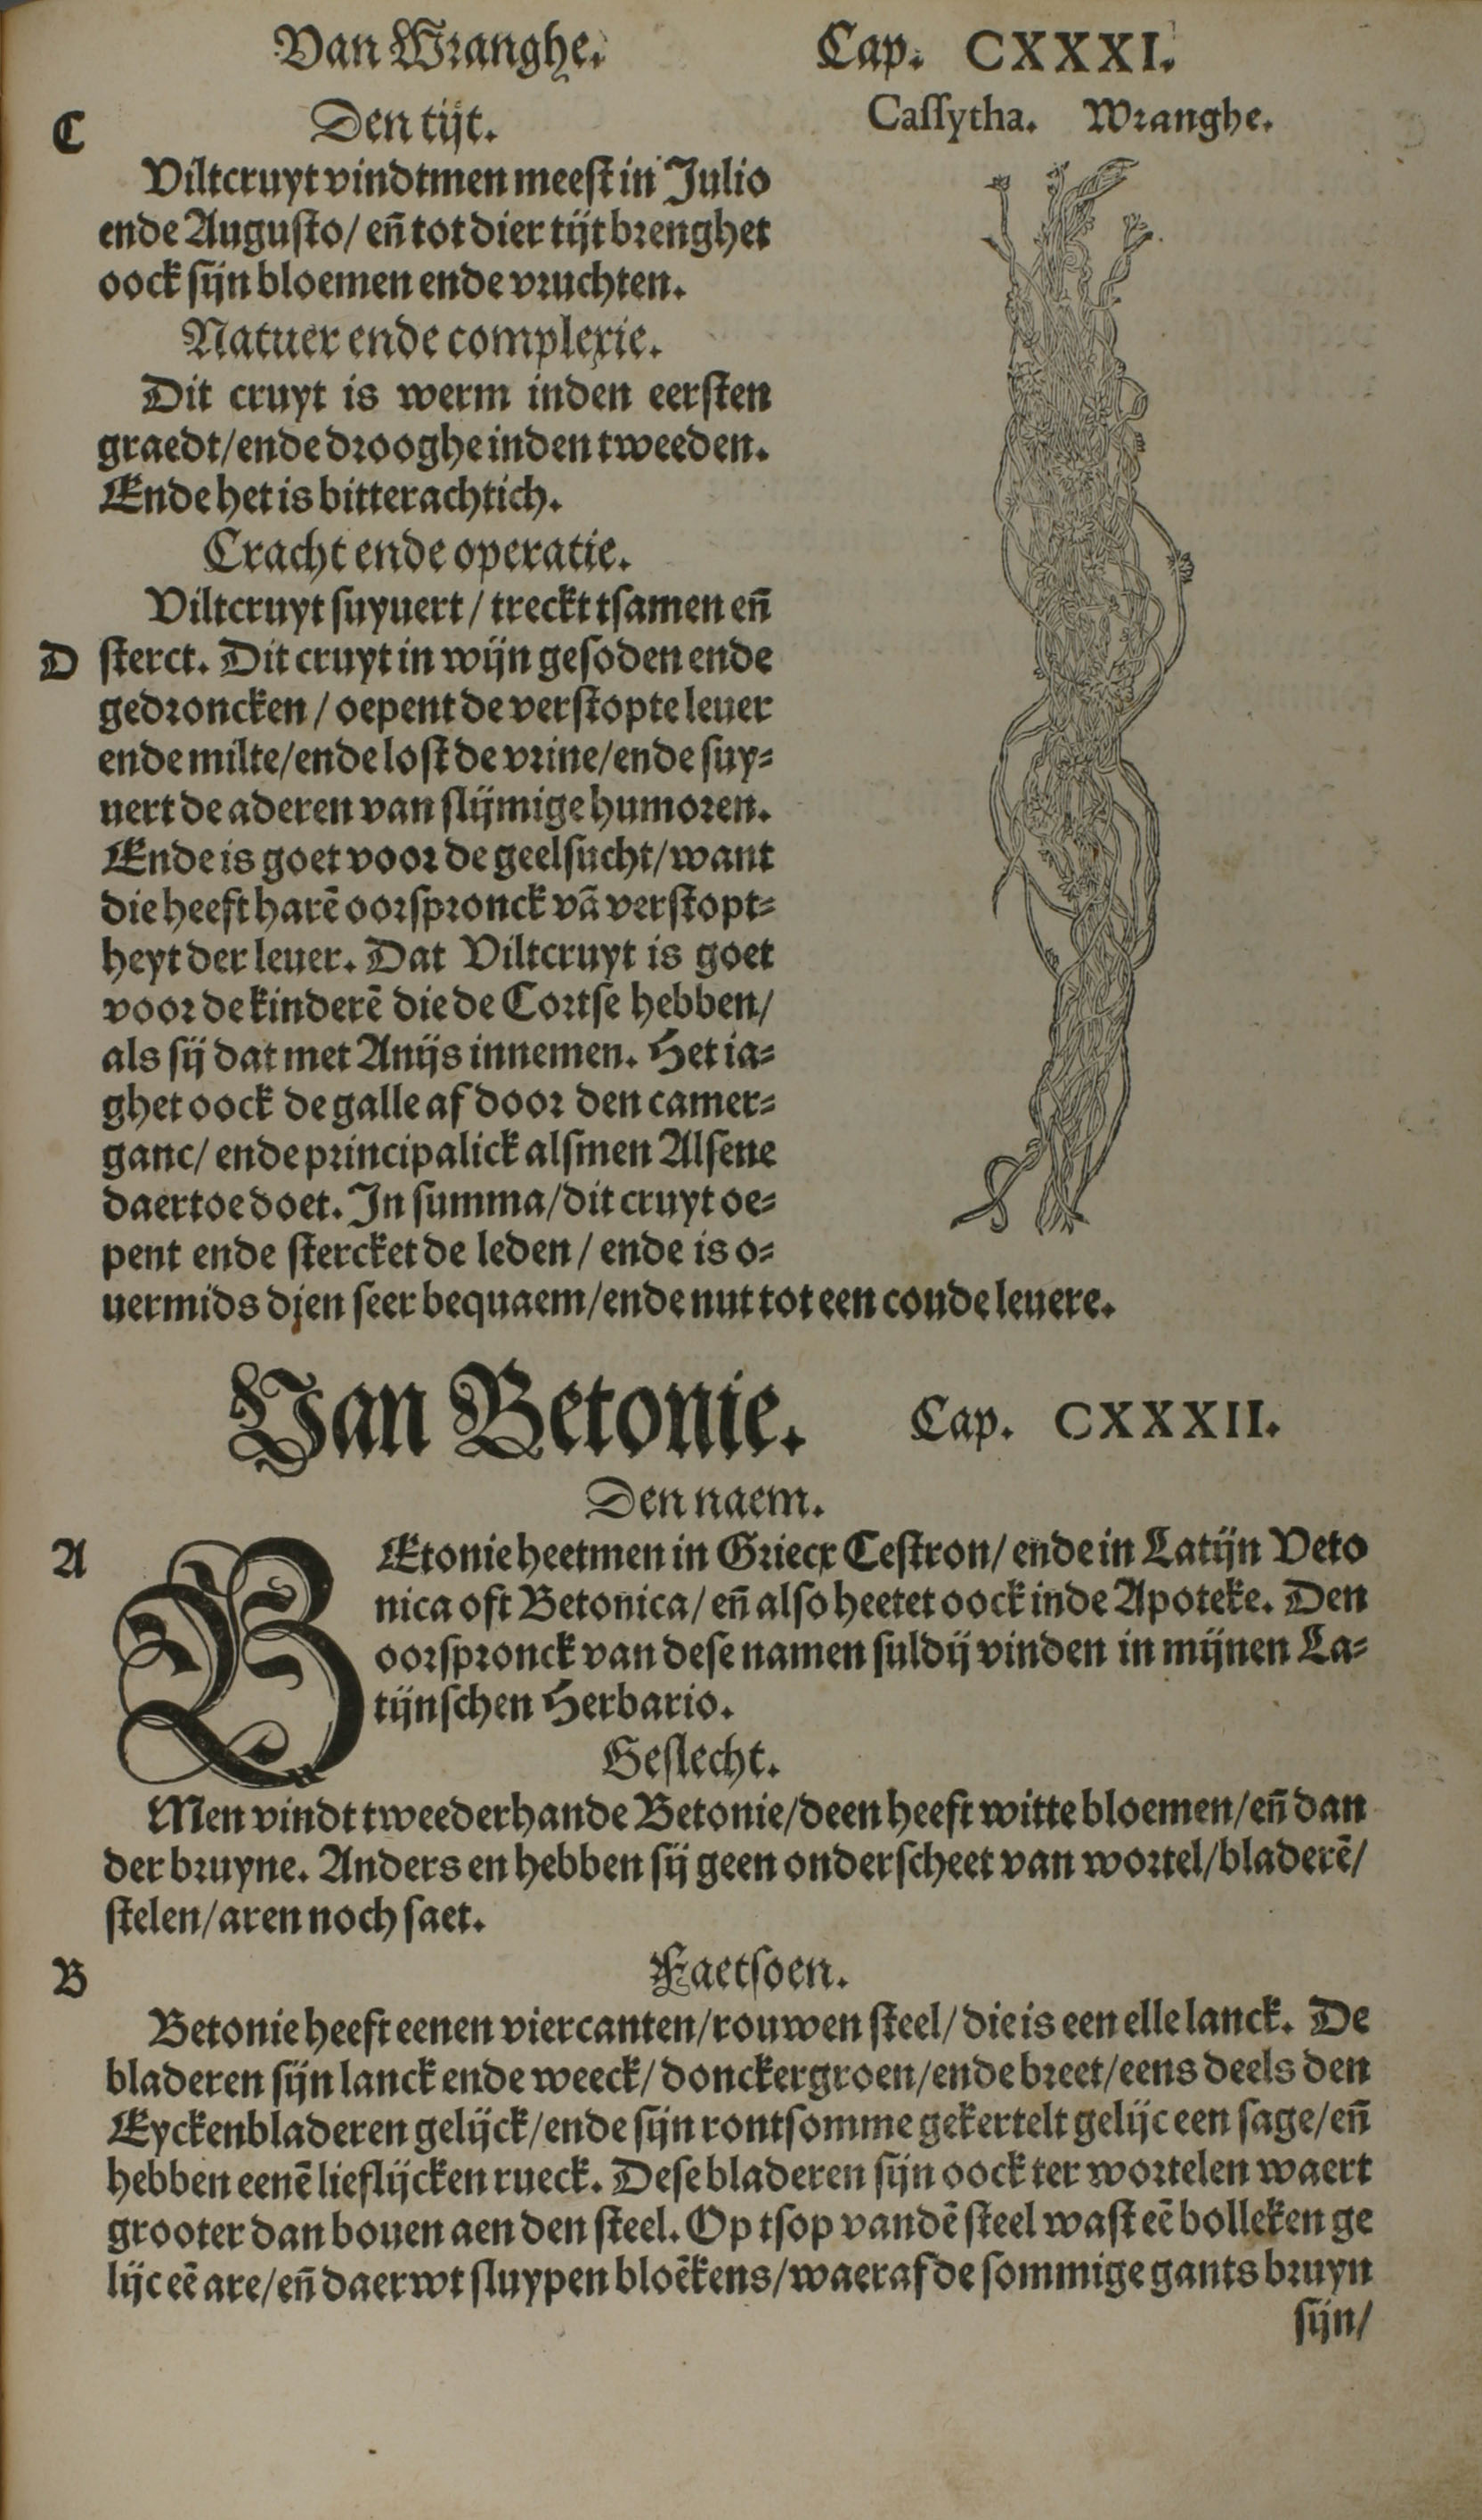 Van Wranghe. Cap. CXXXI.
Cassytha. Wranghe.
C
Den tijt.
Viltcruyt vindtmen meest in Julio
ende Augusto/ en̄ tot dier tijt brenghet
oock sijn bloemen ende vruchten.
Natuer ende complexie.
Dit cruyt is werm inden eersten
graedt/ende drooghe inden tweeden.
Ende het is bitterachtich.
Cracht ende operatie.
Viltcruyt suyuert / treckt tsamen en̄
D sterct. Dit cruyt in wijn gesoden ende
gedroncken / oepent de verstopte leuer
ende milte/ende lost de vrine/ende suy⸗
uert de aderen van slijmige humoren.
Ende is goet voor de geelsucht/want
die heeft harē oorspronck vā verstopt⸗
heyt der leuer. Dat Viltcruyt is goet
voor de kinderē die de Cortse hebben/
als sij dat met Anijs innemen. Het ia⸗
ghet oock de galle af door den camer⸗
ganc/ ende principalick alsmen Alsene
daertoe doet. In summa/dit cruyt oe⸗
pent ende stercket de leden / ende is o⸗
uermids dien seer bequaem/ende nut tot een coude leuere.
Van Betonie. Cap. CXXXII.
Den naem.
A
BEtonie heetmen in Griecx Cestron/ ende in Latijn Veto
nica oft Betonica/ en̄ also heetet oock inde Apoteke. Den
oorspronck van dese namen suldij vinden in mijnen La⸗
tijnschen Herbario.
Geslecht.
Men vindt tweederhande Betonie/deen heeft witte bloemen/en̄ dan
der bruyne. Anders en hebben sij geen onderscheet van wortel/bladerē/
stelen/aren noch saet.
B
Faetsoen.
Betonie heeft eenen viercanten/rouwen steel/ die is een elle lanck. De
bladeren sijn lanck ende weeck/ donckergroen/ende breet/eens deels den
Eyckenbladeren gelijck/ende sijn rontsomme gekertelt gelijc een sage/en̄
hebben eenē lieflijcken rueck. Dese bladeren sijn oock ter wortelen waert
grooter dan bouen aen den steel. Op tsop vandē steel wast eē bolleken ge
lijc eē are/en̄ daer wt sluypen bloēkens/waeraf de sommige gants bruyn
sijn/